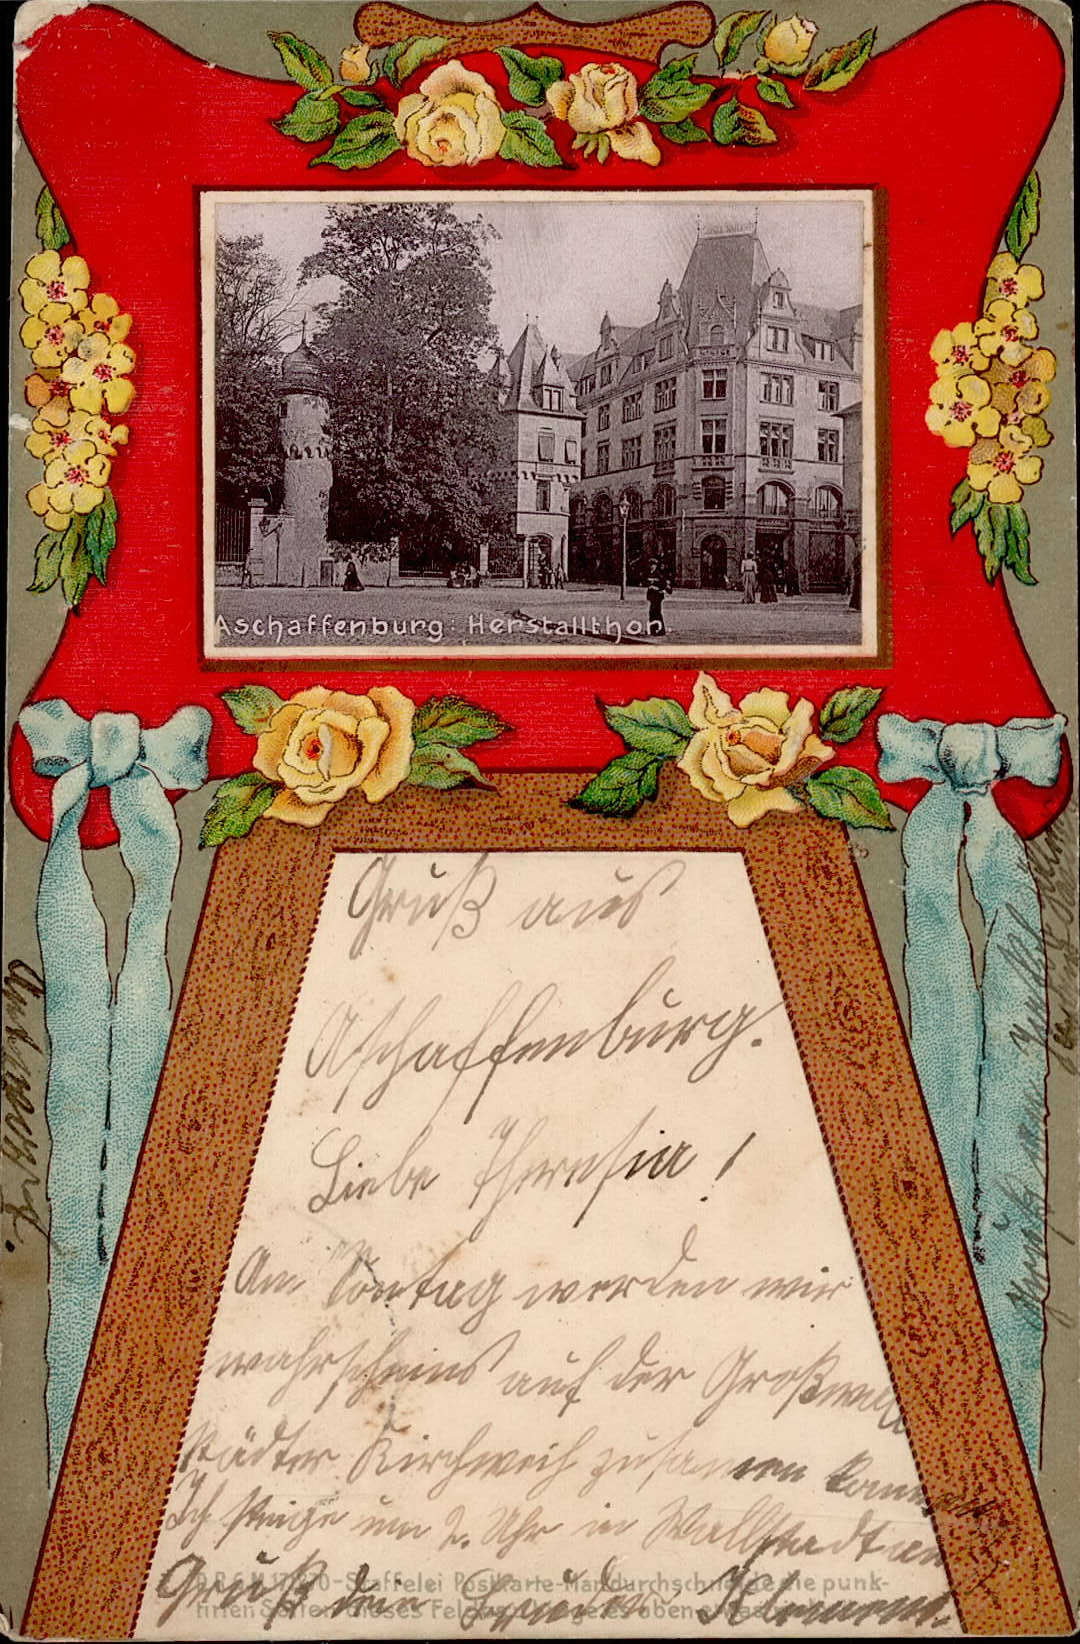 Aschaffenburg: Herstallthor
Gruß aus
Aschaffenburg.
Liebe Theresia!
Am Sontag werden wir
wahrscheins auf der Großwall
städter Kirchweih zusamen komen
Ich steige um 2. Uhr in Wallstadt aus
Gruß dein Bruder Klemens.
D.R.G.M. 17 870-Staffelei Postkarte-Man durchschneide die punk-
tirten Seiten dieses Feldes oben